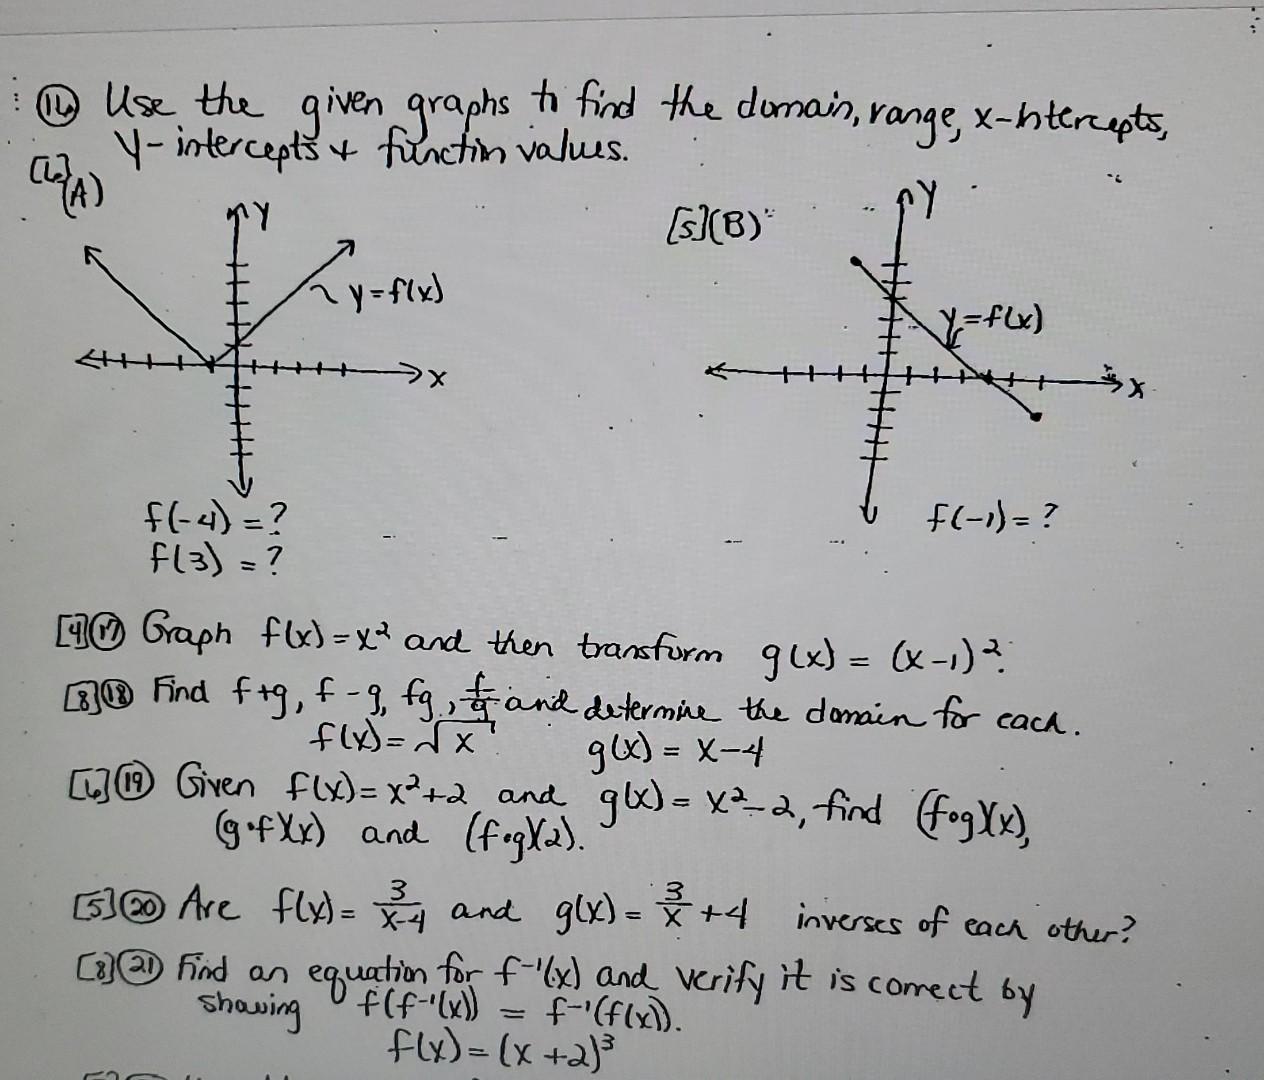 ⑯ Use the given graphs to find the domain, range, x-intercepts,
y-intercepts + function values.
[6](A)
y
y=f(x)
x
f(-4) = ?
f(3) = ?
[5](B)
y
y=f(x)
x
f(-1) = ?
[4]⑰ Graph f(x) = x² and then transform g(x) = (x-1)².
[8]⑱ Find f+g, f-g, fg, f/g and determine the domain for each.
f(x) = √x g(x) = x-4
[6]⑲ Given f(x) = x²+2 and g(x) = x²-2, find (f∘g)(x),
(g∘f)(x) and (f∘g)(2).
[5]⑳ Are f(x) = 3/(x-4) and g(x) = 3/x + 4 inverses of each other?
[8]㉑ Find an equation for f⁻¹(x) and verify it is correct by
showing f(f⁻¹(x)) = f⁻¹(f(x)).
f(x) = (x+2)³